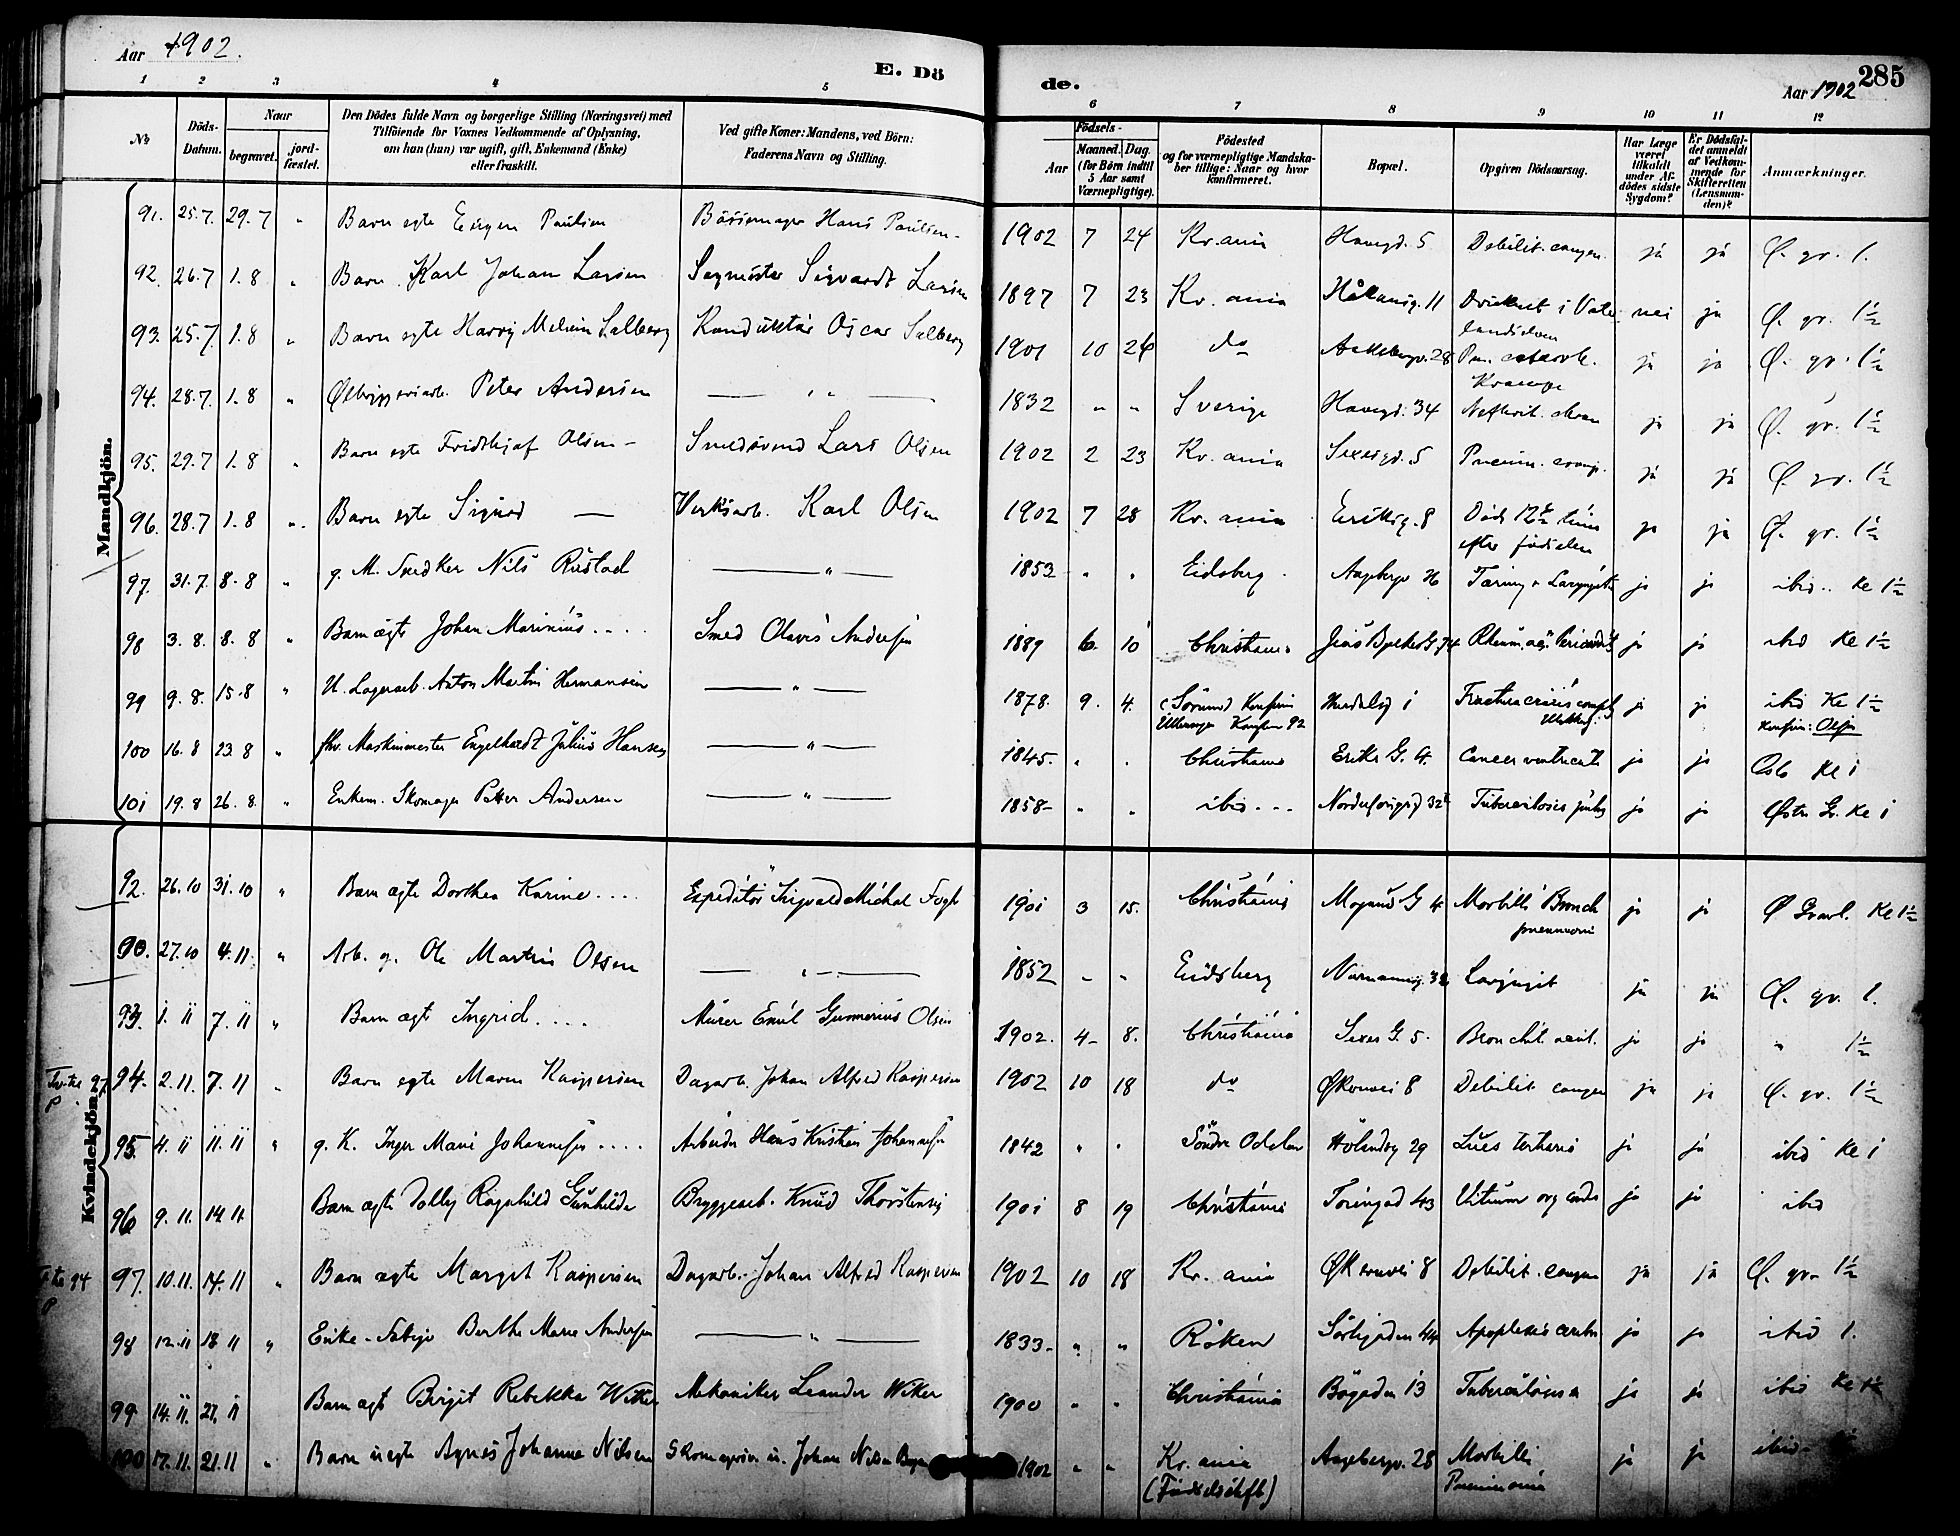 Aar 1902.
E. Dö
de.
Aar 1902
285
1 2 3 4 5 6 7 8 9 10 11 12
No
Döds-Datum.
Naar
begravet.
jord-fæstet.
Den Dödes fulde Navn og borgerlige Stilling (Næringsvei) med
Tilföiende for Voxnes Vedkommende af Oplysning,
om han (hun) var ugift, gift, Enkemand (Enke)
eller fraskilt.
Ved gifte Koner: Mandens, ved Börn:
Faderens Navn og Stilling.
Födsels-
Aar
Maaned. Dag.
(for Börn indtil
5 Aar samt
Værnepligtige).
Födested
og for værnepligtige Mandska-
ber tillige: Naar og hvor
konfirmeret.
Bopæl.
Opgiven Dödsaarsag.
Har Læge
været
tilkaldt
under Af-
dödes sidste
Sygdom?
Er Dödsfal-
det anmeldt
af Vedkom-
mende for
Skifteretten
(Lensman-
den)?
Anmærkninger.
Mandkjön.
91. 25.7. 29.7 " Barn egte Paulsen Hans Paulsen 1902 7 24 Kr.ania Havegd. 5 Debilit. congen. ja ja Ø. gr. 1.
92. 26.7 1.8 " Barn Karl Johan Larsen Sigvardt Larsen 1897 7 23 Kr.ania Håkonsg. 11 Druknet i Vaterlandselven nei ja Ø. gr. 1½
93. 25.7. 1.8 " Barn egte Harry Melvin Salberg Konduktør Oscar Salberg 1901 10 26 do Aakebergv. 28 ja ja Ø. gr. 1½
94. 28.7. 1.8 " Peter Andersen — " — 1832 " " Sverige Havegd. 34 ja ja Ø. gr. 1½
95. 29.7 1.8 " Barn egte Fridthjof Olsen Smedsvend Lars Olsen 1902 2 23 Kr.ania Sexesgd. 5 ja ja Ø. gr. 1½
96. 28.7 1.8 " Barn egte Sigurd — Verksarb. Karl Olsen 1902 7 28 Kr.ania Eriksg. 8 Død 12½ time efter fødselen ja ja Ø. gr. 1½
97. 31.7. 8.8 " g. M. Snedker Nils Rustad — " — 1853 " " Eidsberg ja ja ibid. Ke 1½
98 3.8. 8.8 " Barn ægte Johan Marinius.... Smed Olavus Andersen 1889 6. 10 Christiania Jens Bjelkes G. 74 ja ja ibid Ke 1½
99 9.8. 15.8 " U. Lagerarb. Anton Martin Hermansen — " — 1878. 9. 4. ja ja ibid Ke 1½
Konfirm: Olsen
100 16.8 23.8 " fhv. Maskinmester Engelhardt Julius Hansen — " — 1845. " " Christiania Eriks G. 4. Cancer ventriculi ja ja Oslo Ke 1
101 19.8 26.8. " Enkem. Skomager Petter Andersen — " — 1858 " " ibid... Tuberculosis pulm ja ja Østre Gr. Ke 1
Kvindekjön.
92. 26.10 31.10 " Barn ægte Dorthea Karine.... Expeditør Sigvald Michal Fogh 1901 3 15. Christiania Mogens G 4 Morbilli Bronch pneumoni ja ja Ø Gravl. Ke 1½
90. 27.10 4.11 " Arb. g. Ole Martin Olsen — " — 1852 " " Eidsberg Laryngit ja ja Ø. gr. 1.
93. 1.11 7.11 " Barn ægt Ingrid.... Murer Emil Gunnerius Olsen 1902. 4 8. Christiania Sexes G. 5. Bronchit. acut. ja ja " 1½
94. 2.11 7.11 " Barn egte Maren Kaspersen Dagarb. Johan Alfred Kaspersen 1902 10 18 do Økernvei 8 Debilit. congen ja ja Ø. gr. 1½
95. 4.11 11.11 " g. K. Inger Marie Johannesen.... Arbeider Hans Kristian Johannesen 1842 " " Søndre Odalen Hølandsg 29 Lues tertiaria ja ja ibid Ke 1
96 9.11. 14.11. Barn ægte Dolly Ragnhild Gunhilda Bryggearb. Knud Thorstensen 1901 8 19 Christiania 43 Vitium org cordis ja ja ibid
97. 10.11. 14.11 " Barn ægte Margit Kaspersen Dagarb. Johan Alfred Kaspersen 1902 10 18 Kr.ania Økernvei 8 Debilit. congen ja ja Ø. gr. 1½
98 12.11 18.11 " Enke Berthe Marie Andersen — " — 1833 " " Røken Sørligaden 44 Apoplexia cerebri ja ja ibid 1.
99 14.11. 21.11 Barn ægt Birgit Rebekka Wiker Mekaniker Leander Wiker 1900 " " Christiania Bøgaden 13 Tuberculosis ja ja ibid Ke 1½
100 17.11. 21.11 " Barn uegte Agnes Johanne Nilsen Johan Nilsen 1902 " " Kr.ania (Fødselsstift.) Aagebergv. 28 Morbilli Pneumonia ja ja ibid